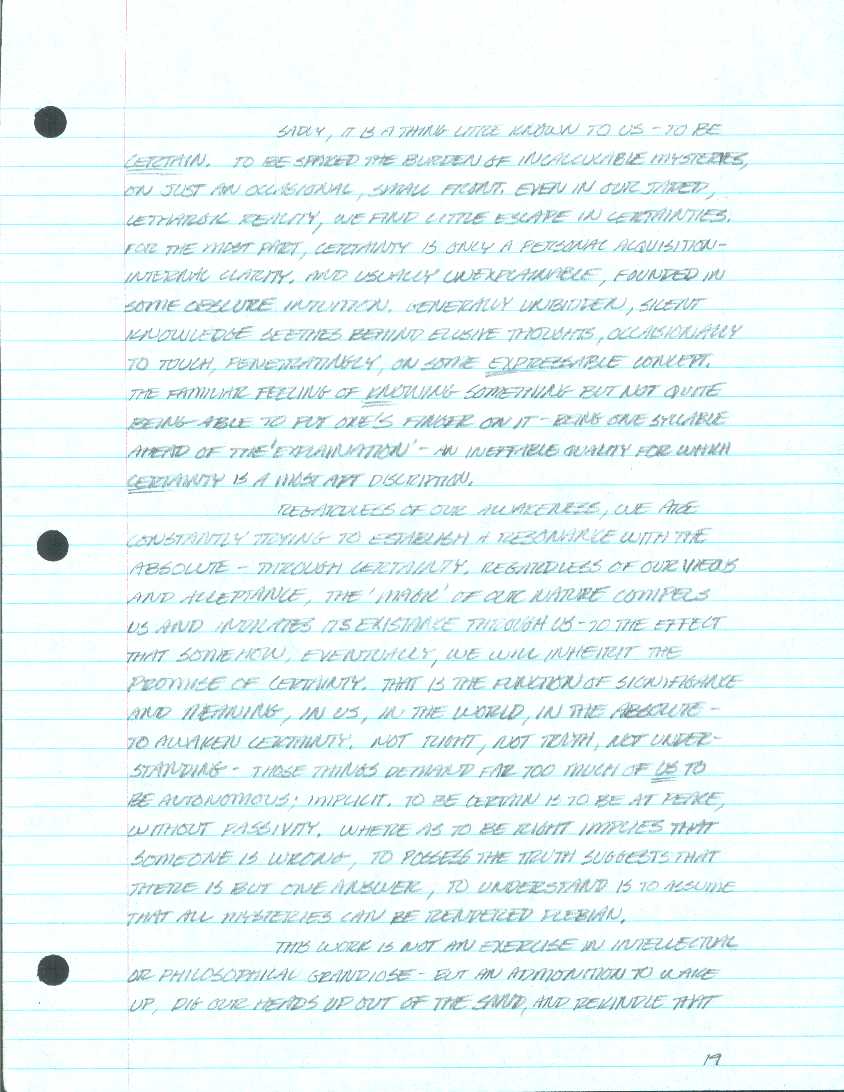 SADLY, IT IS A THING LITTLE KNOWN TO US - TO BE
CERTAIN. TO BE SPARED THE BURDEN OF INCALCULABLE MYSTERIES,
ON JUST AN OCCASIONAL, SMALL FRONT. EVEN IN OUR JADED,
LETHARGIC REALITY, WE FIND LITTLE ESCAPE IN CERTAINTIES.
FOR THE MOST PART, CERTAINTY IS ONLY A PERSONAL ACQUISITION -
INTERNAL CLARITY. AND USUALLY UNEXPLAINABLE, FOUNDED IN
SOME OBSCURE INTUITION. GENERALLY UNBIDDEN, SILENT
KNOWLEDGE SEETHES BEHIND ELUSIVE THOUGHTS, OCCASIONALLY
TO TOUCH, PENETRATINGLY, ON SOME EXPRESSABLE CONCEPT.
THE FAMILIAR FEELING OF KNOWING SOMETHING BUT NOT QUITE
BEING ABLE TO PUT ONE'S FINGER ON IT - BEING ONE SYLLABLE
AHEAD OF THE 'EXPLAINATION' - AN INEFFABLE QUALITY FOR WHICH
CERTAINTY IS A MOST APT DISCRIPTION.
REGARDLESS OF OUR AWARENESS, WE ARE
CONSTANTLY TRYING TO ESTABLISH A RESONANCE WITH THE
ABSOLUTE - THROUGH CERTAINTY. REGARDLESS OF OUR VIEWS
AND ACCEPTANCE, THE 'MAGIK' OF OUR NATURE COMPELS
US AND INDICATES ITS EXISTANCE THROUGH US - TO THE EFFECT
THAT SOMEHOW, EVENTUALLY, WE WILL INHERIT THE
PROMISE OF CERTAINTY. THAT IS THE FUNCTION OF SIGNIFIGANCE
AND MEANING, IN US, IN THE WORLD, IN THE ABSOLUTE -
TO AWAKEN CERTAINTY. NOT RIGHT, NOT TRUTH, NOT UNDER-
STANDING - THOSE THINGS DEMAND FAR TOO MUCH OF US TO
BE AUTONOMOUS; IMPLICIT. TO BE CERTAIN IS TO BE AT PEACE,
WITHOUT PASSIVITY. WHERE AS TO BE RIGHT IMPLIES THAT
SOMEONE IS WRONG, TO POSSESS THE TRUTH SUGGESTS THAT
THERE IS BUT ONE ANSWER, TO UNDERSTAND IS TO ASSUME
THAT ALL MYSTERIES CAN BE RENDERED PLEBIAN.
THIS WORK IS NOT AN EXERCISE IN INTELLECTUAL
OR PHILOSOPHICAL GRANDIOSE - BUT AN ADMONITION TO WAKE
UP, DIG OUR HEADS UP OUT OF THE SAND, AND REKINDLE THAT
19